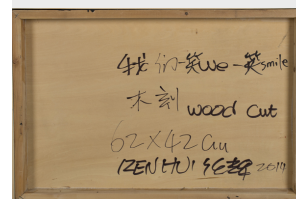 我们-笑We-笑smile
木刻 wood cut
62X42cm
IZENHUI 2014